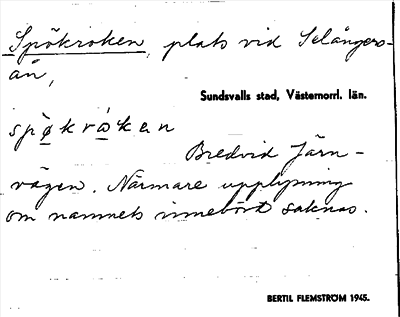 Spökroken, plats vid Selångers-
ån,
Sundsvalls stad, Västernorrl. län.
spø̀kràken
Bredvid Järn-
vägen. Närmare upplysning
om namnets innebörd saknas.
BERTIL FLEMSTRÖM 1945.